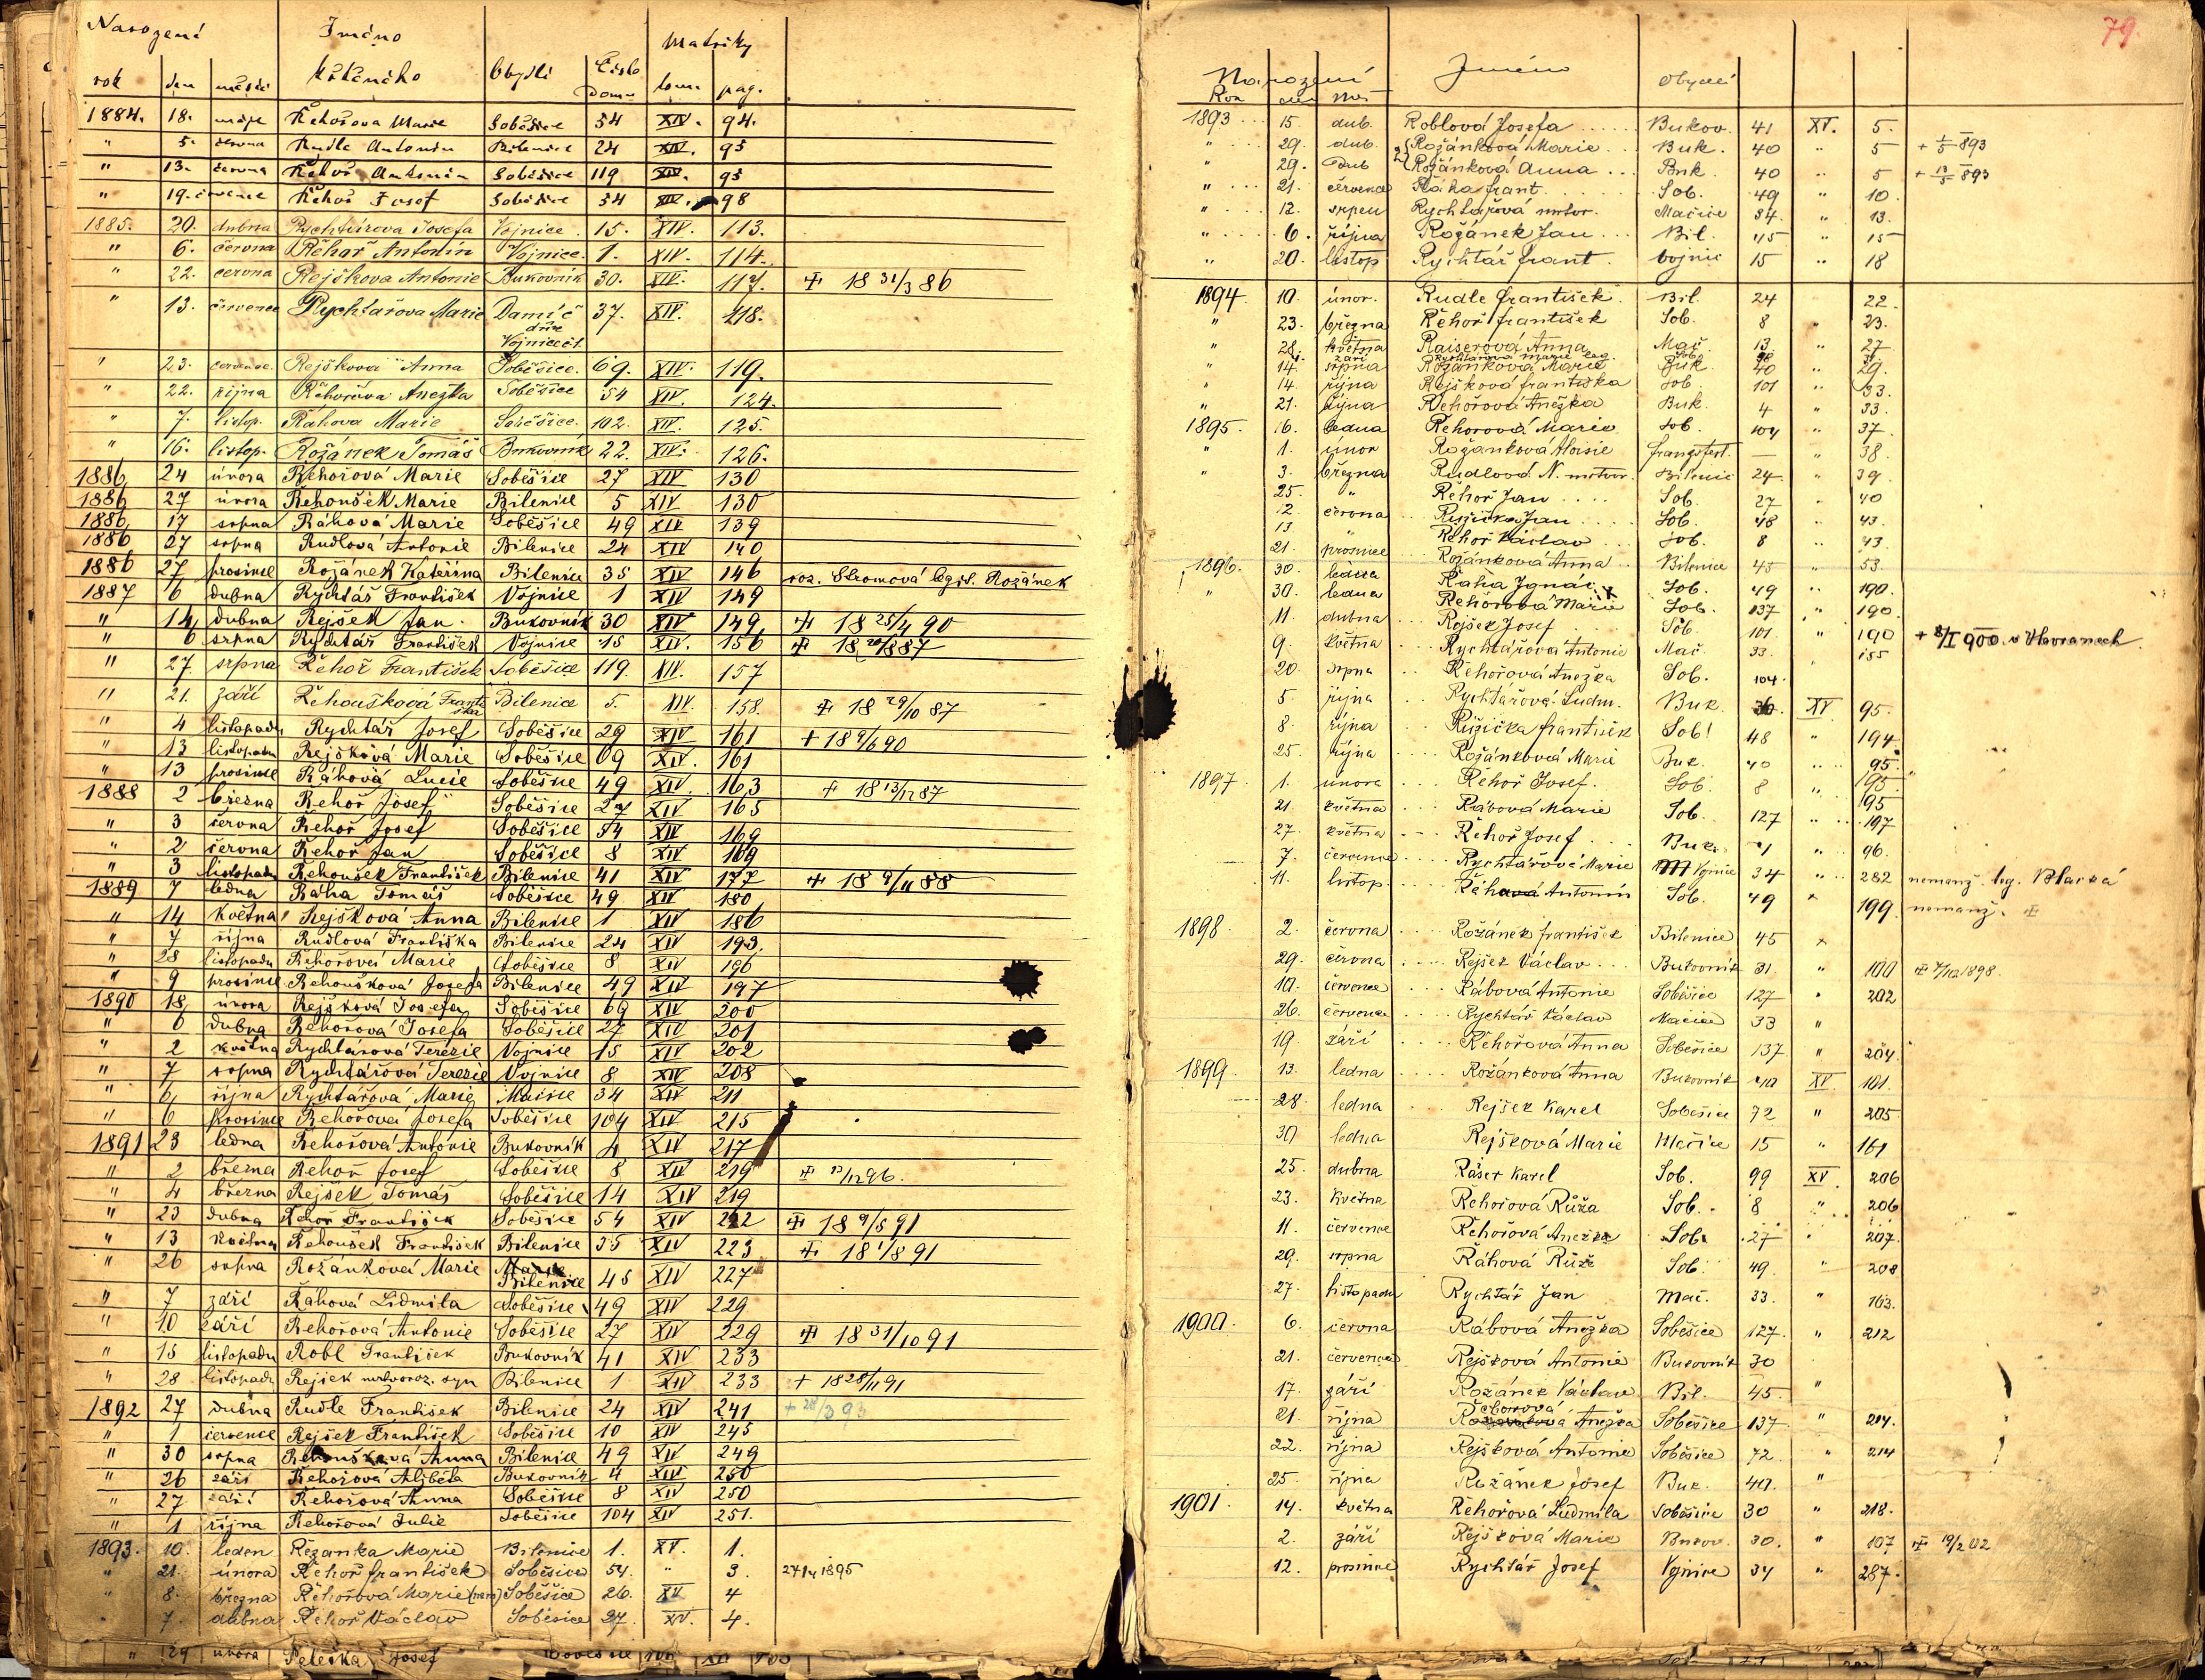 Narození Jméno křtěného Obydlí Číslo Domu Matriky
rok den měsíc tom. pag.
1884. 18. máje Řehořova Marie Soběšice 54 XIV. 94.
" 5. června Rudle Antonín Bílenice 24 XIV. 95
" 13. června Řehoř Antonín Soběšice 119 XIV. 95
" 19. července Řehoř Josef Soběšice 54 XIV. 98
1885. 20. dubna Rychtářova Josefa Vojnice 15. XIV. 113.
" 6. června Řehař Antonín Vojnice. 1. XIV. 114.
" 22. června Rejškova Antonie Bukovník 30. XIV. 117. + 18 31/3 86
" 13. července Rychtařova Marie Damíč 37. XIV. 118.
Vojnice
" 23. července. Rejškova Anna Soběšice. 69. XIV. 119.
" 22. října Řehořova Anežka Soběšice 54 XIV. 124.
" 7. listop. Ráhova Marie Soběšice. 102. XIV. 125.
" 16. listop. Rožánek Tomáš Bukovník 22. XIV. 126.
1886 24 února Řehořová Marie Soběšice 27 XIV 130
1886 27 února Řehoušek Marie Bilenice 5 XIV 130
1886 17 srpna Ráhová Marie Soběšice 49 XIV 139
1886 27 srpna Rudlová Antonie Bilenice 24 XIV 140
1886 27 prosince Rožánek Kateřina Bilenice 35 XIV 146 roz. Stromová legit. Rožánek
1887 6 dubna Rychtář František Vojnice 1 XIV 149
" 14 dubna Rejšek Jan. Bukovník 30 XIV 149 + 18 25/4 90
" 6 srpna Rychtář František Vojnice 15 XIV. 156
" 27. srpna Řehoř František Soběšice 119. XIV. 157
" 21. září Řehoušková Františka Bilenice 5. XIV. 158. + 18 29/10 87
" 4 listopadu Rychtář Josef Soběšice 29 XIV 161 + 18 9/6 90
" 13 listopadu Rejšková Marie Soběšice 69 XIV. 161
" 13 prosince Ráhová Lucie Soběšice 49 XIV. 163 + 18 13/12 87
1888 2 března Řehoř Josef Soběšice 27 XIV 165
" 3 června Řehoř Josef Soběšice 54 XIV 169
" 2 června Řehoř Jan Soběšice 8 XIV 169
" 3 listopadu Řehoušek František Bilenice 41 XIV 177 + 18 9/11 88
1889 7 ledna Ráha Tomáš Soběšice 49 XIV 180
" 14 května Rejšková Anna Bilenice 1 XIV 186
" 7 října Rudlová Františka Bilenice 24 XIV 193.
" 28 listopadu Řehořová Marie Soběšice 8 XIV 196
" 9 prosince Řehoušková Josefa Bilenice 49 XIV 197
1890 18 února Rejšková Josefa Soběšice 69 XIV 200
" 6 dubna Řehořová Josefa Soběšice 27 XIV 201
" 2 května Rychtářová Terezie Vojnice 15 XIV 202
" 7 srpna Rychtářová Terezie Vojnice 8 XIV 208
" 6 října Rychtářová Marie Mačice 34 XIV 211
" 6 prosince Řehořová Josefa Soběšice 104 XIV 215
1891 23 ledna Řehořová Antonie Bukovník 4 XIV 217
" 2 března Řehoř Josef Soběšice 8 XIV 219
" 4 března Rejšek Tomáš Soběšice 14 XIV 219
" 23 dubna Řehoř František Soběšice 54 XIV 222 + 18 9/5 91
" 13 května Řehoušek František Bilenice 35 XIV 223 + 18 1/8 91
" 26 srpna Rožánková Marie Bilenice 45 XIV 227
" 7 září Ráhová Lidmila Soběšice 49 XIV 229
" 10 září Řehořová Antonie Soběšice 27 XIV 229 + 18 31/10 91
" 15 listopadu Robl František Bukovník 41 XIV 233
" 28 listopadu Rejšek mrtvoroz. syn Bilenice 1 XIV 233 + 18 28/11 91
1892 27 dubna Rudle František Bilenice 24 XIV 241
" 1 července Rejšek František Soběšice 10 XIV 245
" 30 srpna Řehoušková Anna Bilenice 49 XIV 249
" 26 září Řehořová Alžběta Bukovník 4 XIV 250
" 27 září Řehořová Anna Soběšice 8 XIV 250
" 1 října Řehořová Julie Soběšice 104 XIV 251.
1893. 10. leden Řezanka Marie Bilenice 1. XV. 1.
" 21. února Řehoř František Soběšice 54. " 3.
" 8. března Řehořová Marie Soběšice 26. XV 4
" 7. dubna Řehoř Václav Soběšice 27. XV. 4.
" 29 února Peleška Josef
79.
Narození Jméno Obydlí
Rok den Měs
1893 15. dub. Roblová Josefa Bukov. 41 XV. 5.
" 29. dub. Rožánková Marie Buk. 40 " 5 + 1/5 893
29. Dub Rožánková Anna Buk. 40 5 + 12/5 893
" 21. července Ráha frant. Sob. 49 " 10.
" 12. srpen Rychtařová mrtvor. Mačice 34. " 13.
" 6. října Rožánek Jan Bil. 45 " 15
" 20. listop Rychtář frant. Vojnic 15 " 18
1894. 10. únor. Rudle František Bil. 24 22.
" 23. března Řehoř František Sob. 8 " 23.
" 28. května Raiserová Anna Mač. 13. " 27
září Rychtářová Marie leg. Sob.
14. srpna Rožánková Marie Buk. 40 29.
" 14. října Rejšková františka Sob. 101 " 33.
" 21. října Řehořová Anežka Buk. 4 " 33.
1895. 16. ledna Řehořová Marie Sob. 104 " 37.
" 1. únor Rožánková Aloisie — " 38.
" 3. března Rudlová N. mrtvor. Bilenic 24 " 39
25. " Řehoř Jan Sob. 27 " 40
12. června Ružička Jan Sob. 48 " 43.
13. " Řehoř Václav Sob. 8 " 43.
21. prosince Rožánková Anna Bilenice 45 " 53.
1896. 30. ledna Raha Ignác Sob. 49 " 190.
" 30. ledna Řehořová Marie Sob. 137 " 190
11. dubna Rejšek Josef Sob. 101 " 190
9. května Rychtářová Antonie Mač. 33. " 155
20. srpna Řehořová Anežka Sob. 104.
5. října Rychtářová Ludm. Buk. 36 XV. 95.
8. října Ružička František Sob. 48 " 194
25. října Rožánková Marie Buk. 40 " 95.
1897. 1. února Řehoř Josef. Sob. 8 " 195
21. května Rábová Marie Sob. 127 " 197
27. května Řehoř Josef Buk. " 96.
7. července Rychtářová Marie Vojnice 34 " 282 nemanž. leg.
11. listop. Ráha Antonín Sob. 49 " 199. nemanž.
1898 2. června Rožánek František Bilenice 45 "
29. června Rejšek Václav Bukovník 31. " 100
10. července Rábová Antonie Soběšice 127 " 202
26. července Rychtář Václav Mačice 33 "
19. září Řehořová Anna Soběšice 137 " 204.
1899. 13. ledna Rožánková Anna Bukovník 40 XV. 101.
28. ledna Rejšek Karel Soběšice 72 " 205
30 ledna Rejšková Marie Mačice 15 " 161
25. dubna Rášer Karel Sob. 99 XV. 206
23. května Řehořová Růža Sob. 8 " 206
11. července Řehořová Anežka Sob. 27 " 207.
29. srpna Ráhová Růže Sob. 49. " 208
27. listopadu Rychtář Jan Mač. 33. " 163.
1900. 6. června Rábová Anežka Soběšice 127. " 212
21. července Rejšková Antonie Bukovník 30
17. září Rožánek Václav Bil. 45. "
21. října Řehořová Anežka Soběšice 137 " 214.
22. října Rejšková Antonie Soběšice 72. " 214
25. října Rožánek Josef Buk. 40. "
1901. 14. května Řehořová Ludmila Soběšice 30 " 218.
2. září Rejšková Marie Bukov. 30. " 107 + 19/2 02
12. prosince Rychtář Josef Vojnice 34 " 287.